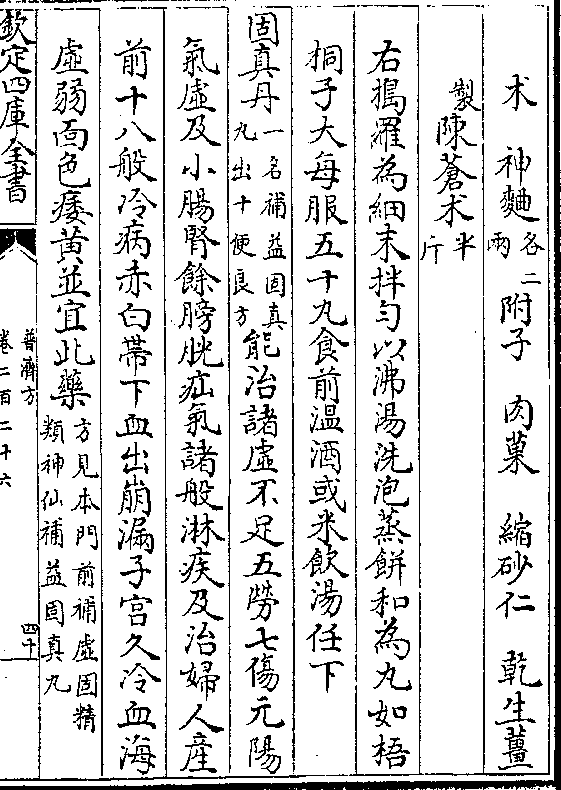 术　神麯各二兩　附子　肉菓　縮砂仁　乾生薑
製陳蒼术半斤
右搗羅為細末拌勻以沸湯洗泡蒸餅和為丸如梧
桐子大每服五十九食前温酒或米飲湯任下
固真丹一名補益固真丸出十便良方能治諸虛不足五勞七傷元陽
氣虛及小腸腎餘膀胱疝氣諸般淋疾及治婦人産
前十八般冷病赤白帶下血出崩漏子宫久冷血海
虛弱面色痿黄並宜此藥方見本門前補虛固精類神仙補益固真丸
欽定四庫全書
普濟方
卷二百二十六
四十